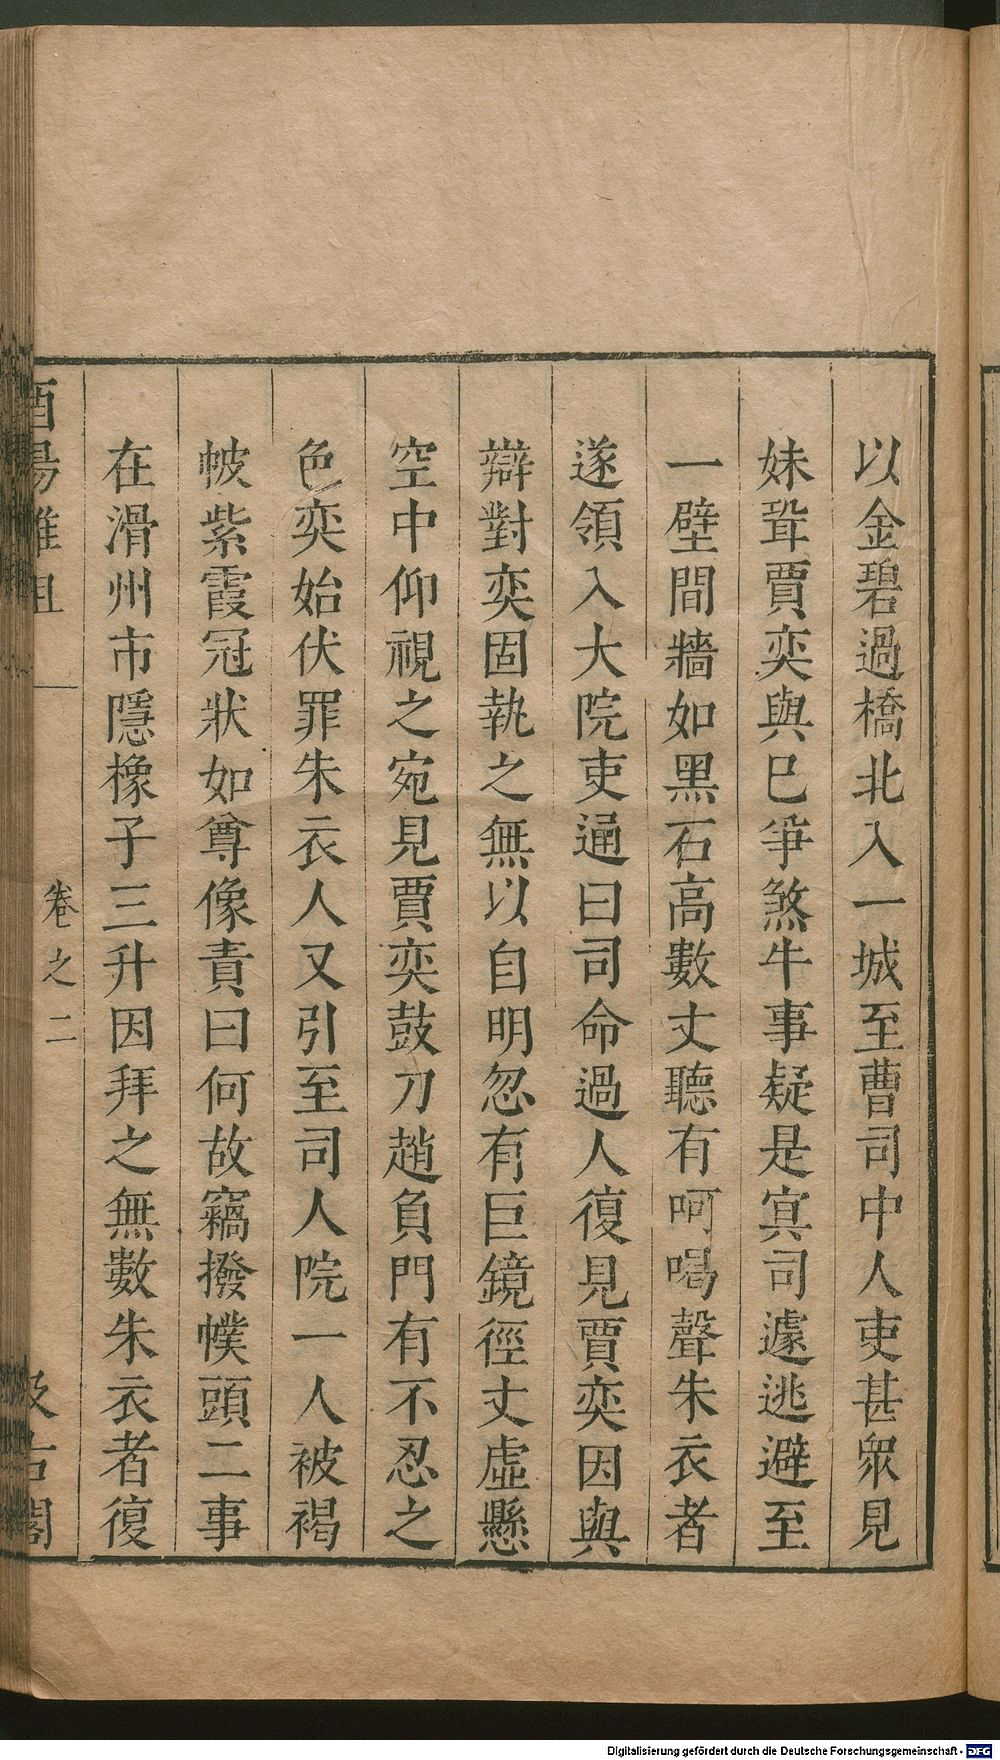 以金碧過橋北入一城至曹司中人吏甚衆見
妹聓賈奕與巳爭煞牛事疑是㝠司遽逃避至
一壁間牆如黑石高數丈聽有呵喝聲朱衣者
遂領入大院吏通曰司命過人復見賈奕因與
辯對奕固執之無以自明忽有巨鏡徑丈虛懸
空中仰視之宛見賈奕鼓刀趙負門有不忍之
色奕始伏罪朱衣人又引至司人院一人被褐
帔紫霞冠狀如尊像責曰何故竊撥幞頭二事
在滑州市隱橡子三升因拜之無數朱衣者復
酉陽雜俎
卷之二
汲古閣
Digitalisierung gefördert durch die Deutsche Forschungsgemeinschaft - DFG